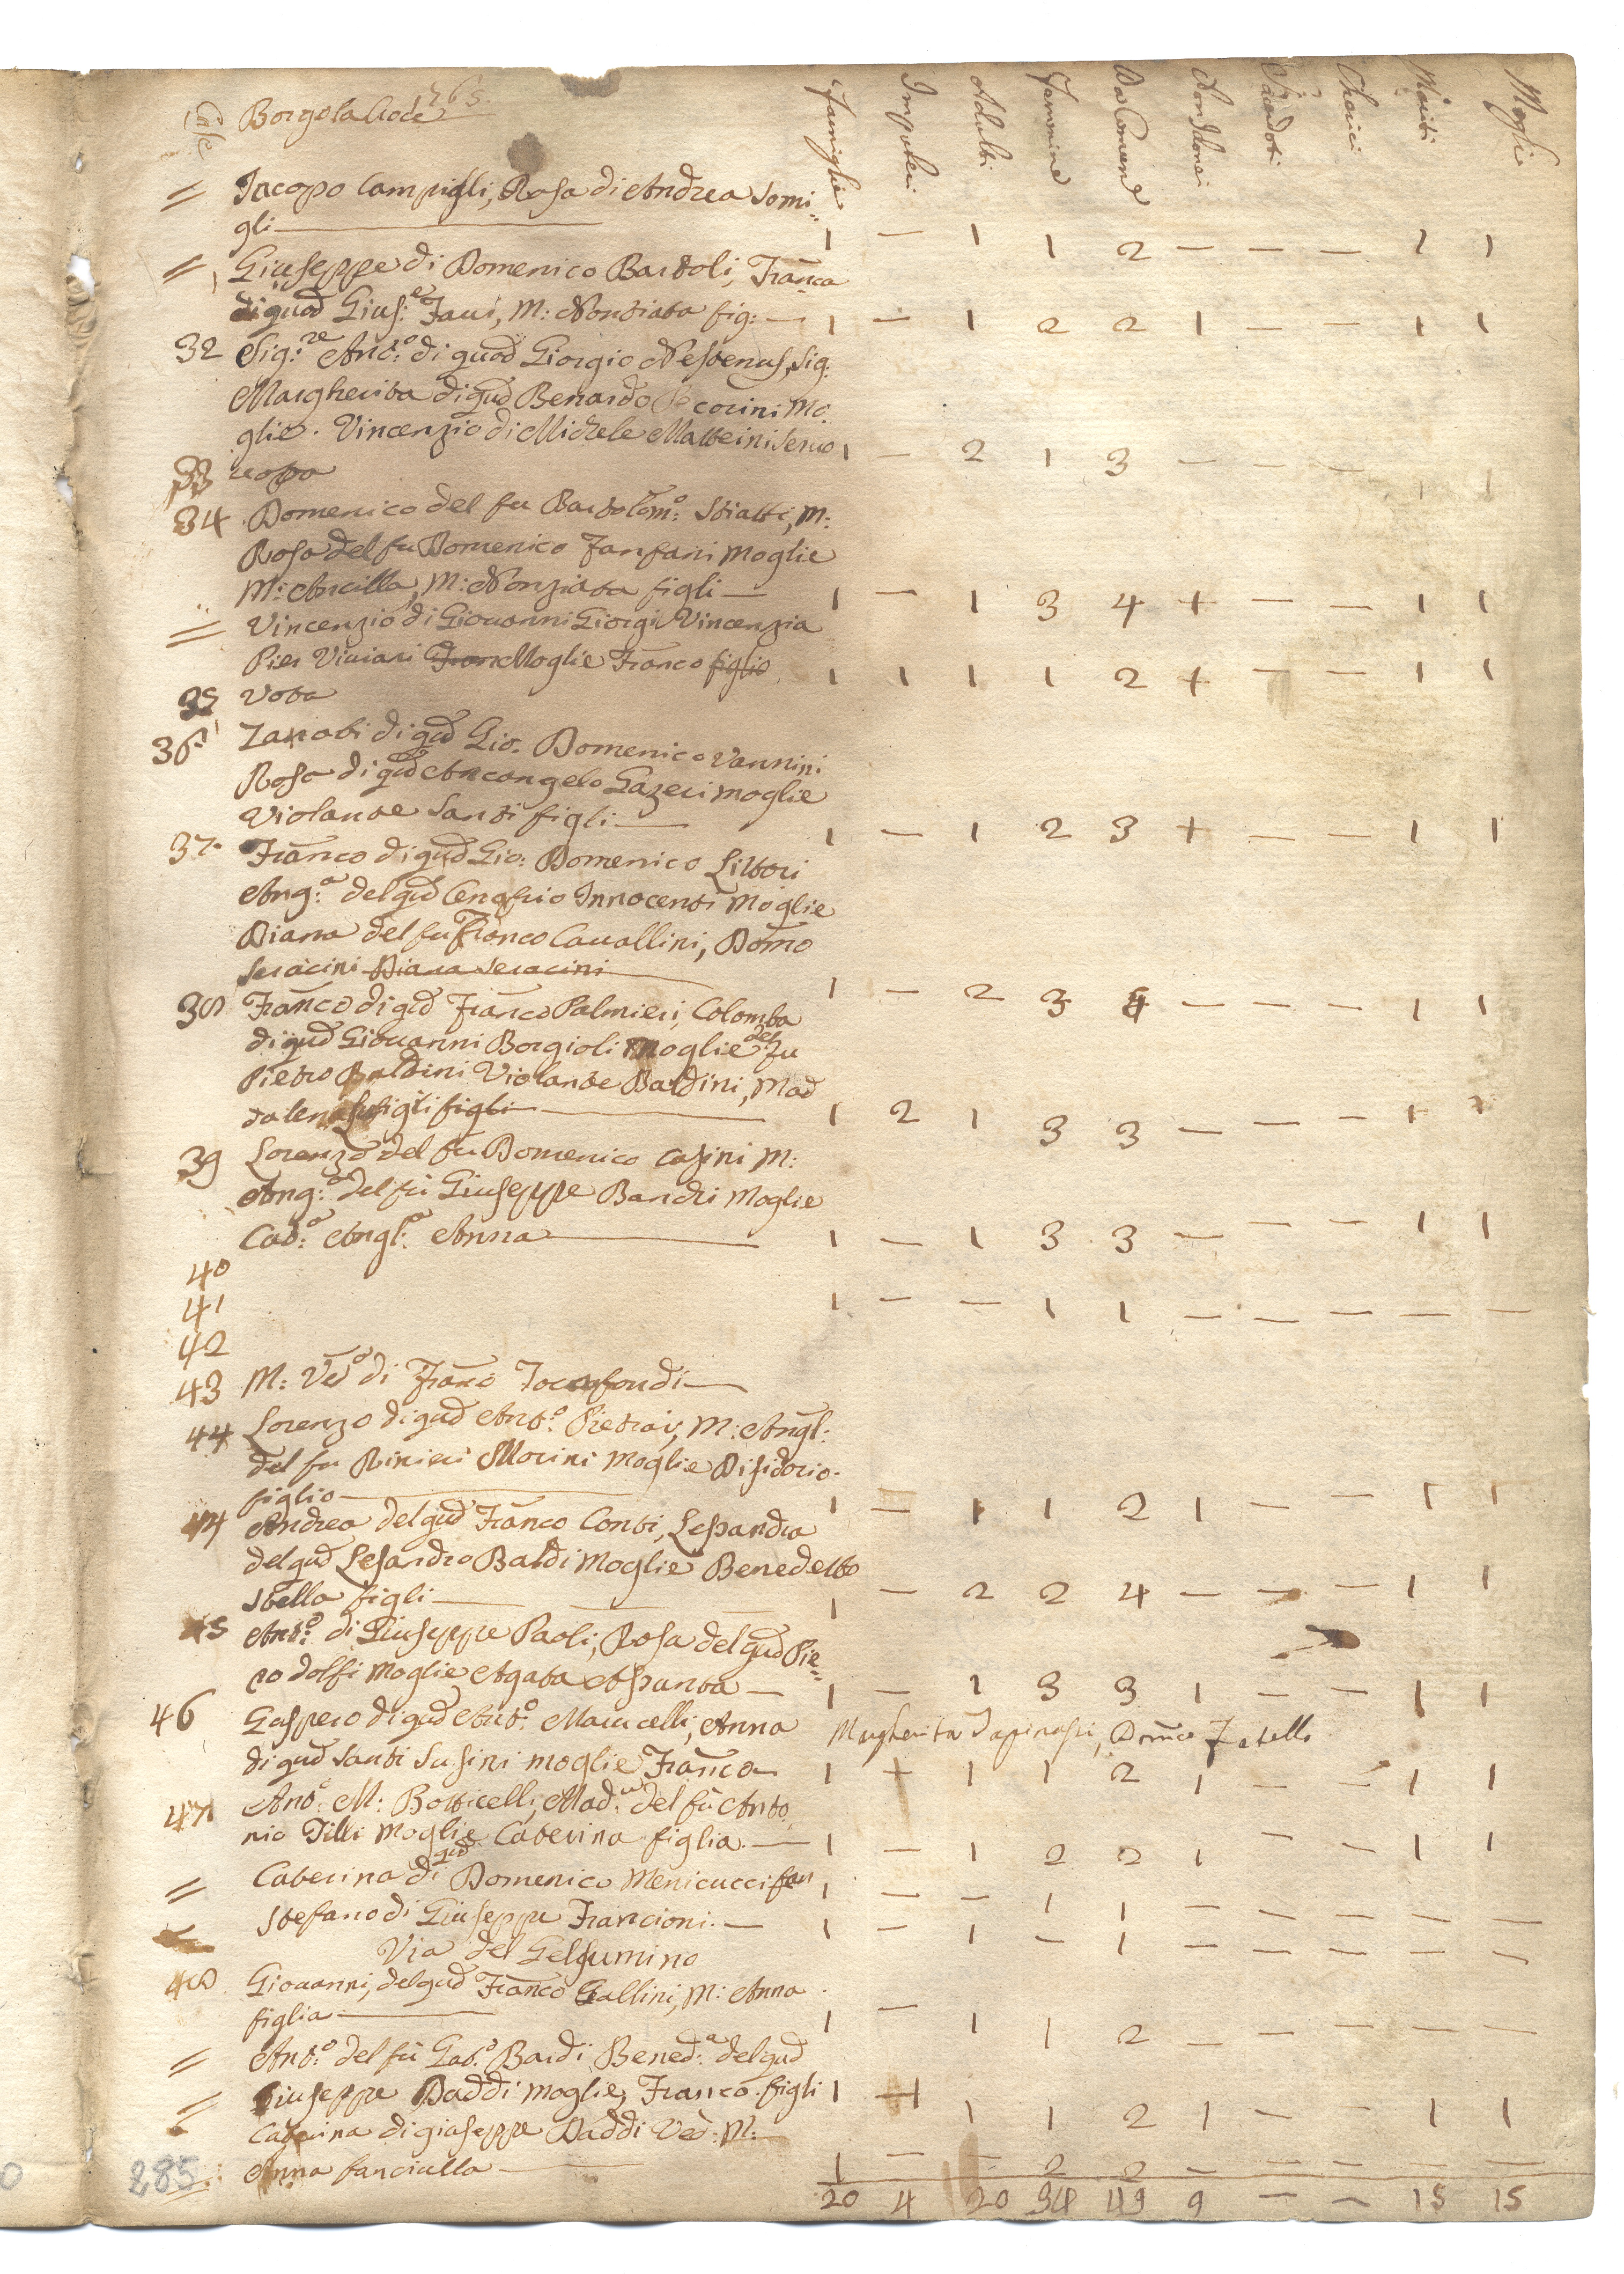 Case Borgo la Croce 265.
Famiglie Impuberi Adulti Femmine Da Comune Non Idonei Sacerdoti Cherici Mariti Moglie
= Jacopo Campigli, Rosa di Andrea Somi=
gli — 1 — 1 1 2 — — — 1 1
= Giuseppe di Domenico Bartoli, Franca
di quod Gius:e Fani, M: Nontiata fig: — 1 — 1 2 2 1 — — 1 1
32 Sig:re Ant:o di quod Giorgio Nestenus, Sig:
Margherita di qud Benardo Pecorini Mo:
glie. Vincenzio di Michele Matteini Servo 1 — 2 1 3 — — — 1
33 uota
34 Domenico del fu Bartolom:o Stiatti, M:
Rosa del fu Domenico Fanfani Moglie
M: Ancilla, M: Nonziata figli — 1 — 1 3 4 + — — 1 1
= Vincenzio di Giouanni Giorgi Vincenzia
Pier Viuiani Fran Moglie Franco figlio 1 1 1 1 2 + — — 1 1
35 Vota
36 Zanobi di qud Gio. Domenico Vannini
Rosa di qud Arcangelo Gazeri moglie
Violante Santi figli — 1 — 1 2 3 + — — 1 1
37 Franco di qud Gio: Domenico Littori
Ang:a del qud Onofrio Innocenti Moglie
Diana del fu Franco Cauallini, Domo
Seracini Diana Seracini 1 — 2 3 4 — — — 1 1
38 Franco di qud Franco Palmieri, Colomba
di qud Giouanni Borgioli Moglie del Fu
Pietro Baldini Violante Baldini, Mad
dalena figli figli — 1 2 1 3 3 — — — 1 1
39 Lorenzo del fu Domenico Casini M:
Ang:a del fù Giuseppe Bandri Moglie
Cat:a Angl:a Anna — 1 — 1 3 3 — — — 1 1
40
41 1 — — 1 1 — — — — —
42
43 M: Ved:a di Franco Tocafondi —
44 Lorenzo di qud Ant:o Pietrai, M: Angl:
del fu Rinieri Morini Moglie Disidorio
figlio — 1 — 1 1 2 1 — — 1 1
44 Andrea del qud Franco Conti, Lessandra
del qud Lesandro Baldi Moglie Benedetto
Stella figli — 1 — 2 2 4 — — — 1 1
45 Ant:o di Giuseppe Paoli, Rosa del qud Pie=
ro dolfi Moglie Agata Assanta — 1 — 1 3 3 1 — — 1 1
46 Gaspero di qud Ant:o Marucelli, Anna Margherita
di qud Santi Susini moglie Franco 1 + 1 1 2 1 — — 1 1
47 Ant:o M: Botticelli, Mad:a del fù Anto
nio Tilli Moglie Caterina figlia. — 1 — 1 2 2 1 — — 1 1
= Caterina di qud Domenico Menicucci fan 1 — — 1 1 — — — — —
Stefano di Giuseppe Francioni. — 1 — 1 — 1 — — — — —
Via del Gelsumino
48 Giouanni, del qud Franco Gallini, M: Anna
figlia — 1 — 1 1 2 — — — — —
= Ant:o del fù Gab:o Bardi Bened:a del qud
= Giuseppe Daddi moglie, Franco figli 1 1 1 1 2 1 — — 1 1
Caterina di giuseppe Daddi Ved: M:
Anna fanciulla — 1 — — 2 2 — — — — —
285 20 4 20 34 49 9 — — 15 15